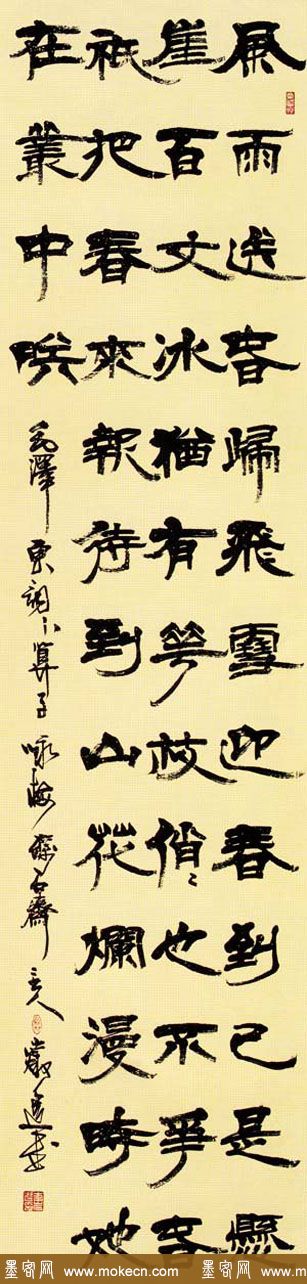 風雨送旾歸飛雪迎春到已是懸
崖百丈冰猶有華枝俏〻也不爭旾
祇把春來報待到山花爛漫時她
在叢中咲
毛澤東詞卜算子咏梅 石齋主人 書
墨客网 www.mokecn.com 墨客网 www.mo